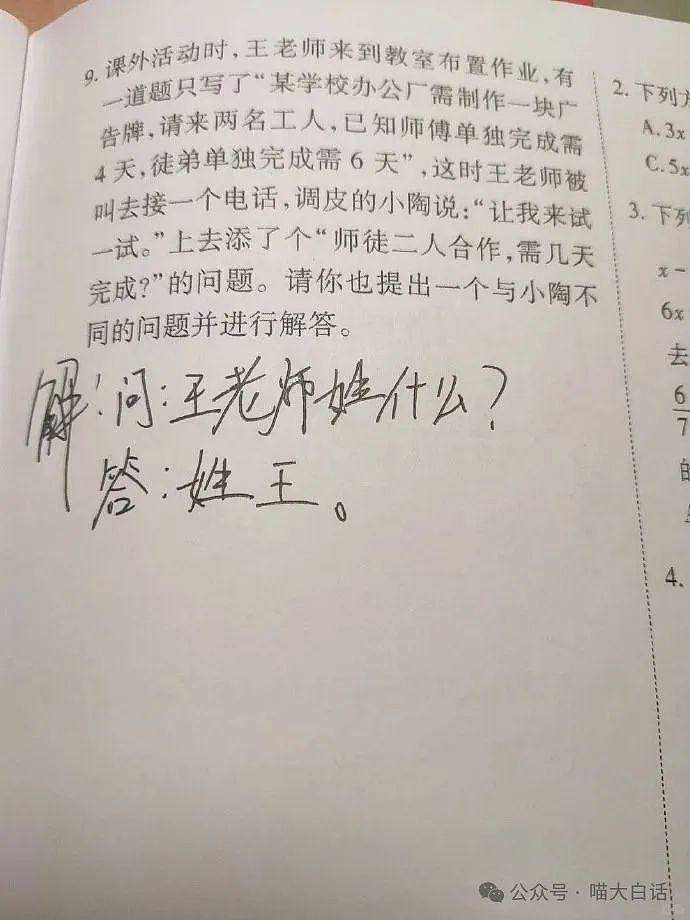 9. 课外活动时,王老师来到教室布置作业,有
一道题只写了“某学校办公厂需制作一块广
告牌,请来两名工人,已知师傅单独完成需
4天,徒弟单独完成需6天”,这时王老师被
叫去接一个电话,调皮的小陶说:“让我来试
一试。”上去添了个“师徒二人合作,需几天
完成?”的问题。请你也提出一个与小陶不
同的问题并进行解答。
解:问:王老师姓什么?
答:姓王。
2. 下列方
A. 3x
C. 5x
3. 下列
x-
6x
去
6
7
的
4.
公众号·喵大白话